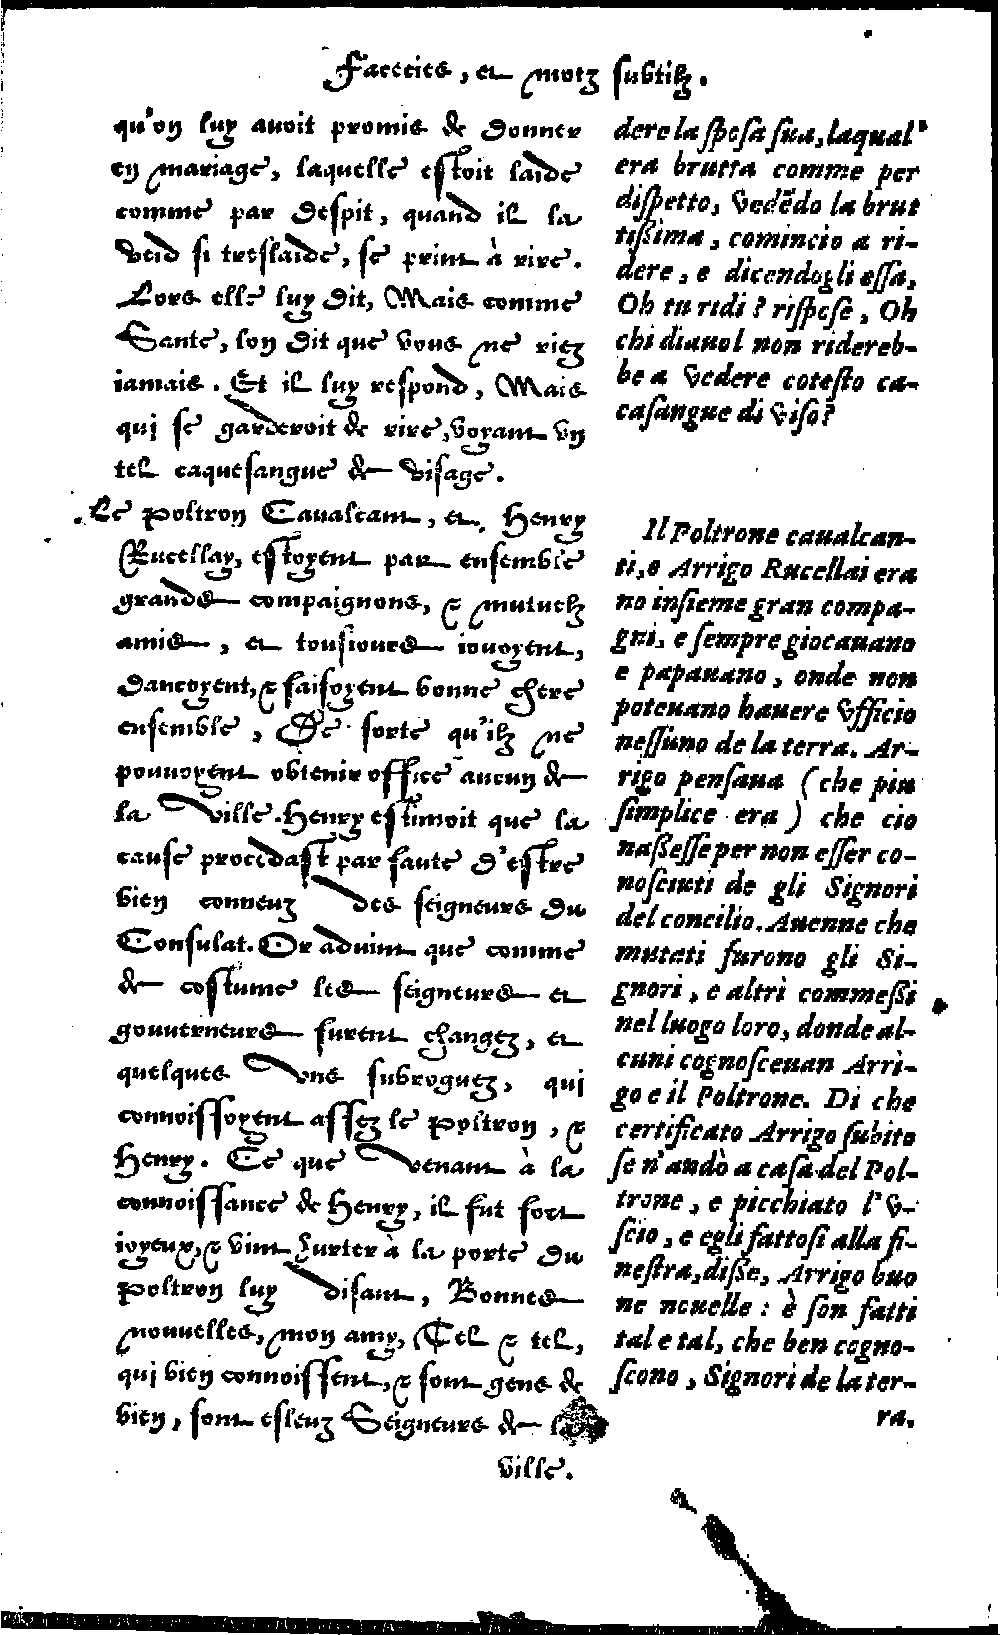 Facecies, et motz subtilz.
qu'on luy avoit promis de donner
en mariage, laquelle estoit laide
comme par despit, quand il la
veid si treslaide, se print à rire.
Lors elle luy dit, Mais comme
Sante, lon dit que vous ne riez
iamais. Et il luy respond, Mais
qui se garderoit de rire, voyant vn
tel caquesangue de visage.
Le poltron Cavalcant, et Henry
Rucellay, estoyent par ensemble
grands compaignons, & mutuelz
amis, et tousiours iouoyent,
dançoyent, & faisoyent bonne chere
ensemble, De sorte qu'ilz ne
pouuoyent obtenir office aucun de
la ville. Henry estimoit que la
cause procedast par faute d'estre
bien conneuz des seigneurs du
Consulat. Or aduint que comme
de costume les seigneurs et
gouuerneurs furent changez, et
quelques vns subroguez, qui
connoissoyent assez le poltron, &
Henry. Ce que venant à la
connoissance de Henry, il fut fort
ioyeux, & vint hurter à la porte du
poltron luy disant, Bonnes
nouuelles, mon amy, Tel & tel,
qui bien connoissent, & sont gens de
bien, sont esleuz Seigneurs de la
ville.
dere la sposa sua, laqual'
era brutta comme per
dispetto, Vedēdo la brut
tißima, comincio a ri-
dere, e dicendogli essa,
Oh tu ridi? rispose, Oh
chi diauol non ridereb-
be a Vedere cotesto ca-
casangue di Viso?
Il Poltrone caualcan-
ti, e Arrigo Rucellai era
no insieme gran compa-
gni, e sempre giocauano
e papauano, onde non
poteuano hauere Vfficio
nessuno de la terra. Ar-
rigo pensaua (che piu
simplice era) che cio
naßesse per non esser co-
nosciuti de gli Signori
del concilio. Auenne che
mutati furono gli Si-
gnori, e altri commeßi
nel luogo loro, donde al-
cuni cognosceuan Arri-
go e il Poltrone. Di che
certificato Arrigo subito
se n'andò a casa del Pol-
trone, e picchiato l'V-
scio, e egli fattosi alla fi-
nestra, diße, Arrigo buo
ne nouelle: è son fatti
tal e tal, che ben cogno-
scono, Signori de la ter-
ra.